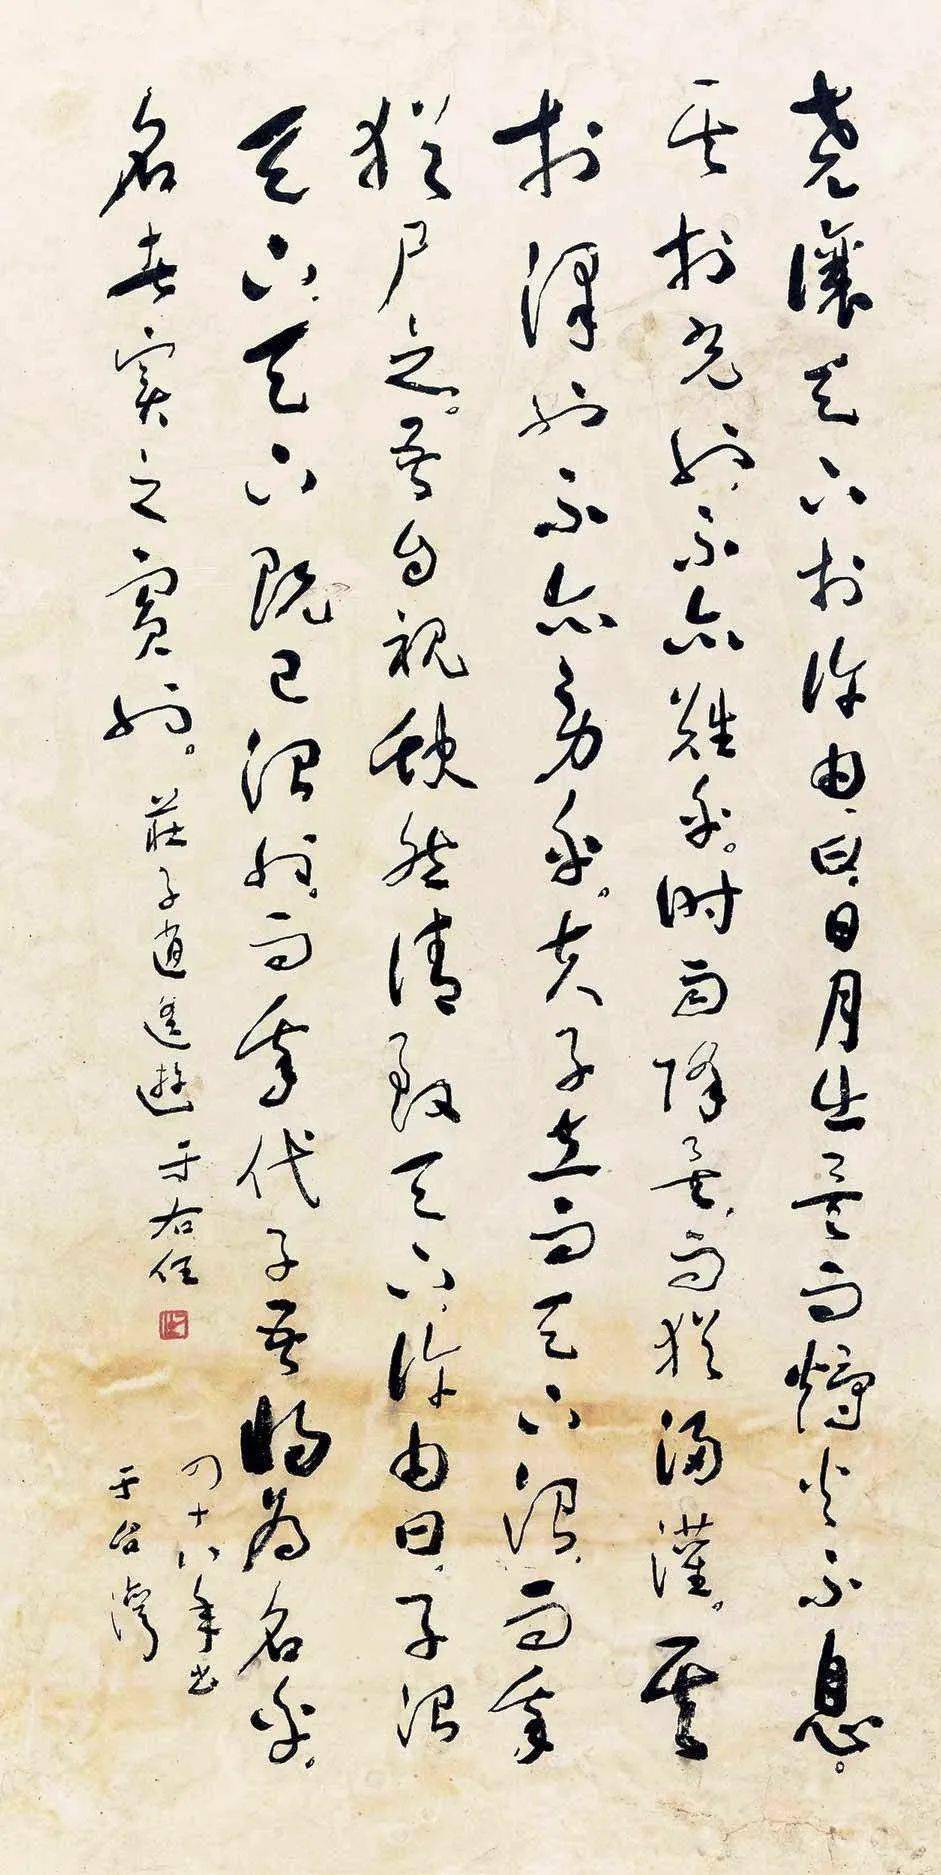 堯讓天下於許由、曰、日月出矣而爝火不息。
其於光也、不亦難乎。時雨降矣、而猶浸灌。其
於澤也不亦勞乎。夫子立而天下治、而我
猶尸之。吾自視缺然請致天下、許由曰、子治
天下、天下既已治也。而我代子吾將為名乎。
名者實之賓也。莊子逍遙遊 于右任
四十八年書
于台灣